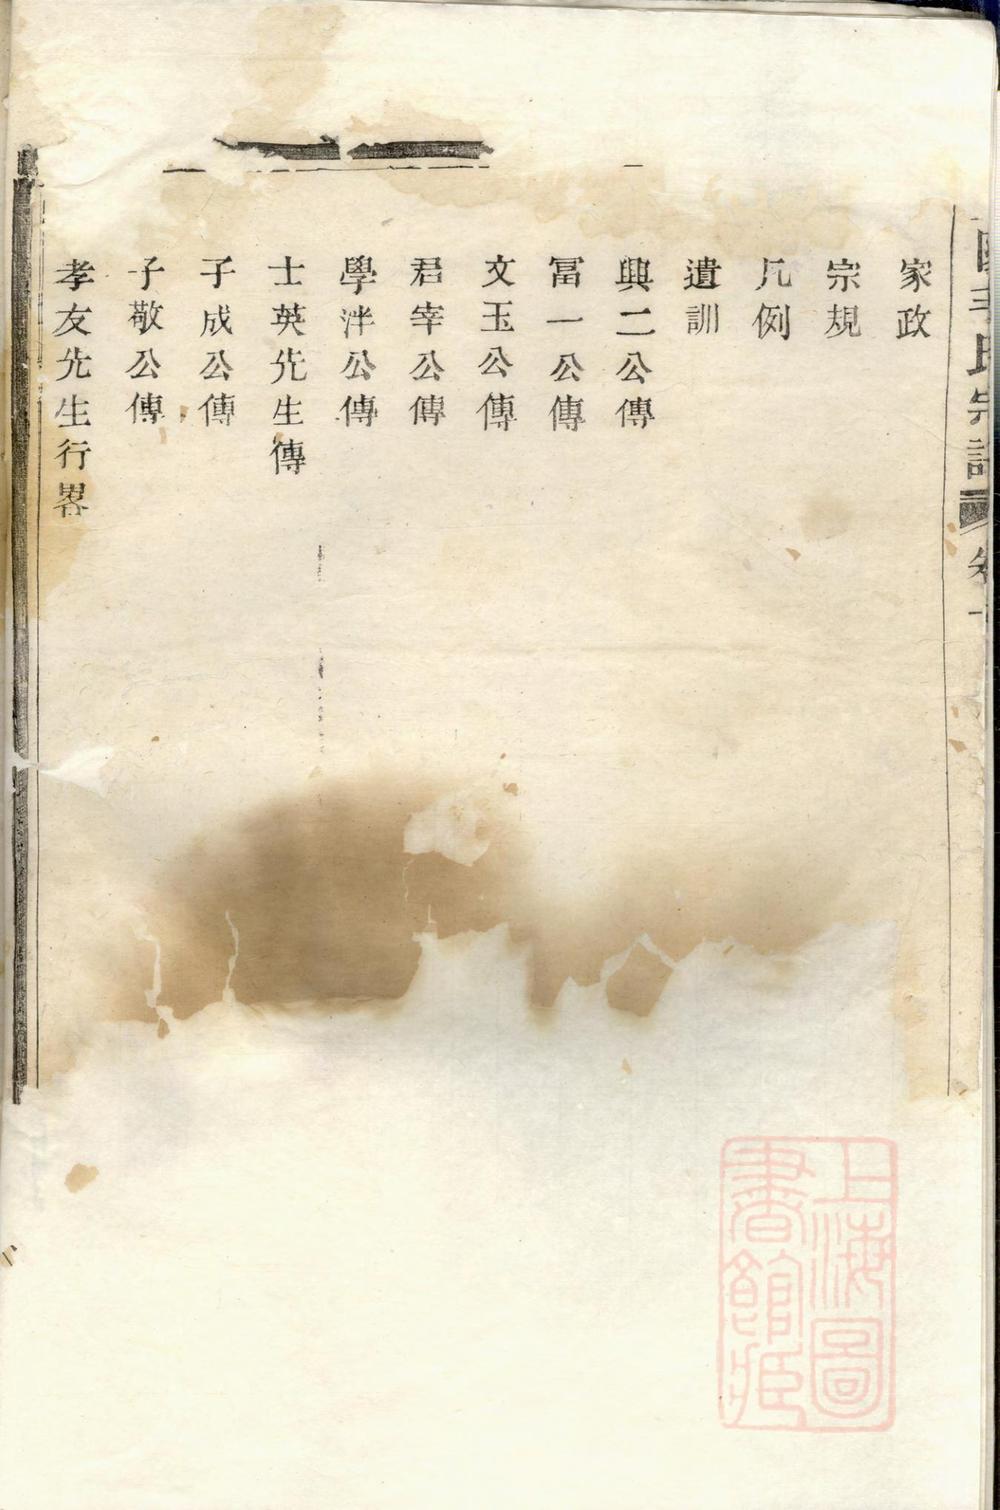 氏宗譜
家政
宗規
凡例
遺訓
興二公傳
冨一公傳
文玉公傳
君宰公傳
學泮公傳
士英先生傳
子成公傳
子敬公傳
孝友先生行畧
上海圖書館藏